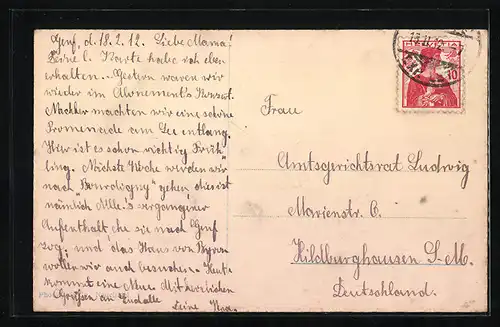 Genf, d. 18.2.12. Liebe Mama!
Deine l. Karte habe ich eben
erhalten... Gestern waren wir
wieder im Abonements Konzert.
Nachher machten wir eine schöne
Promenade am See entlang.
Hier ist es schon richtig Früh-
ling. Nächste Woche werden wir
nach "Bourdigny" gehen dies ist
nämlich Mlle.s vergangener
Aufenthalt ehe sie nach Genf
zog, und das Haus von Byron
wollen wir auch besuchen. Heute
kommt eine Mit herzlichen
Grüssen an Euch alle
Deine
Frau
Amtsgerichtsrat Ludwig
Marienstr. 6.
Hildburghausen S. M.
Deutschland.
10